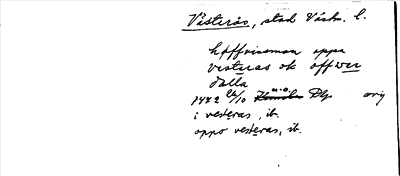 Västerås, stad Västm. l.
høffvisman oppa
vesteras ok offwer
dalla
1472 26/10 u.o. Dlr orig
i vesteras, ib.
oppo vesteras, ib.